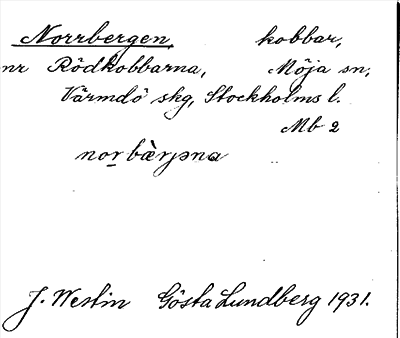 Norrbergen, kobbar,
nr Rödkobbarna, Möja sn,
Värmdö skg, Stockholms l.
Mb 2
nor bærjəna
J. Westin Gösta Lundberg 1931.